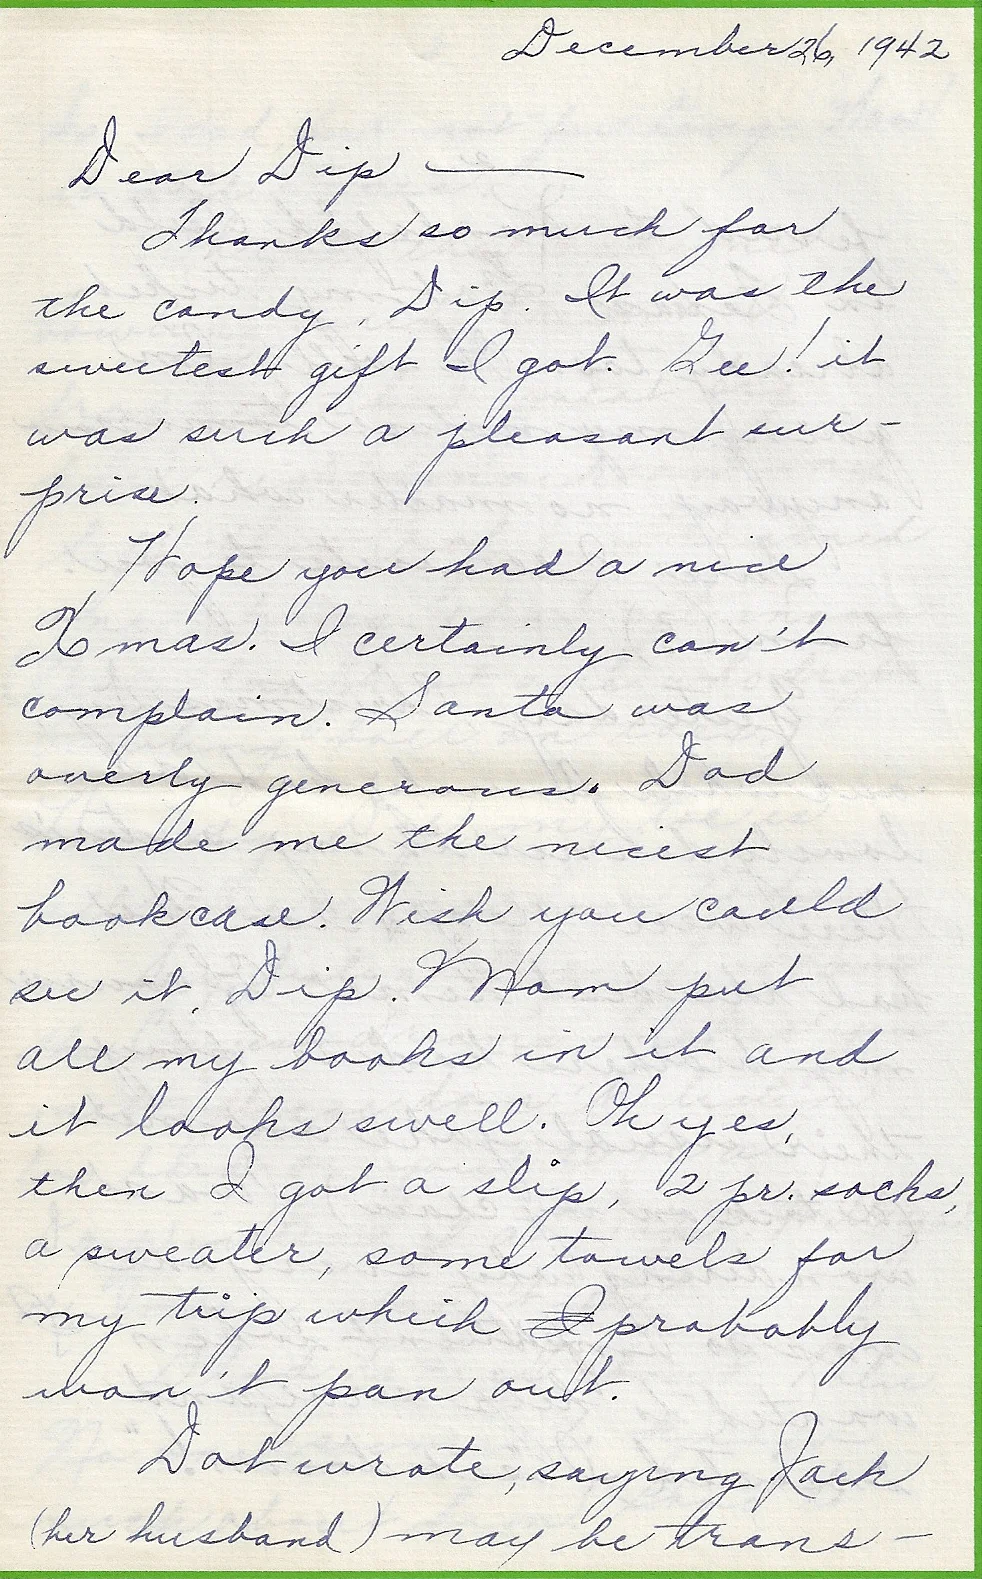 December 26, 1942
Dear Dip —
Thanks so much for
the candy, Dip. It was the
sweetest gift I got. Gee! it
was such a pleasant sur-
prise.
Hope you had a nice
Xmas. I certainly can't
complain. Santa was
overly generous. Dad
made me the nicest
bookcase. Wish you could
see it, Dip. Mom put
all my books in it and
it looks swell. Oh yes,
then I got a slip, 2 pr. socks,
a sweater, some towels for
my trip which I probably
won't pan out.
Dot wrote, saying Jack
(her husband) may be trans-